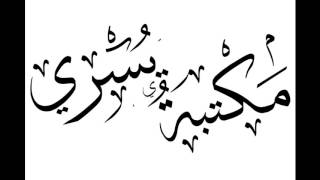 مكتبة يسري